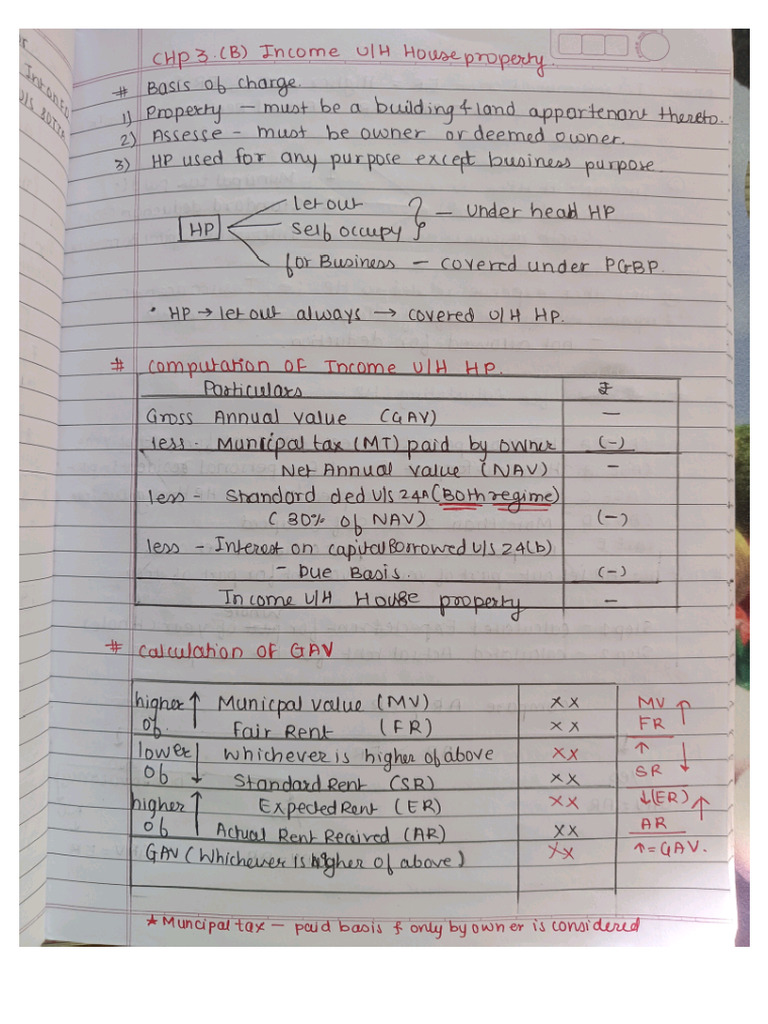 CHP 3.(B) Income U/H House property.
# Basis of charge.
1) Property – must be a building & land appartenant thereto.
2) Assesse – must be owner or deemed owner.
3) HP used for any purpose except business purpose.
HP
Let out
Self occupy
– Under head HP
for Business – covered under PGBP.
• HP → let out always → covered U/H HP.
# Computation OF Income U/H HP.
Particulars ₹
Gross Annual value (GAV) –
less - Municipal tax (MT) paid by owner (-)
Net Annual value (NAV) –
less - Standard ded U/s 24A (Both regime)
(30% of NAV) (-)
less - Interest on capital Borrowed U/s 24(b)
- Due Basis. (-)
Income U/H House property –
# Calculation OF GAV
higher ↑ Municpal value (MV) XX MV ↑
of. Fair Rent (FR) XX FR
lower whichever is higher of above XX ↑
of ↓ Standard Rent (SR) XX SR ↓
higher ↑ Expected Rent (ER) XX ↓(ER) ↑
of Actual Rent Received (AR) XX AR
GAV (Whichever is higher of above) XX ↑=GAV.
★ Muncipal tax – paid basis & only by owner is considered